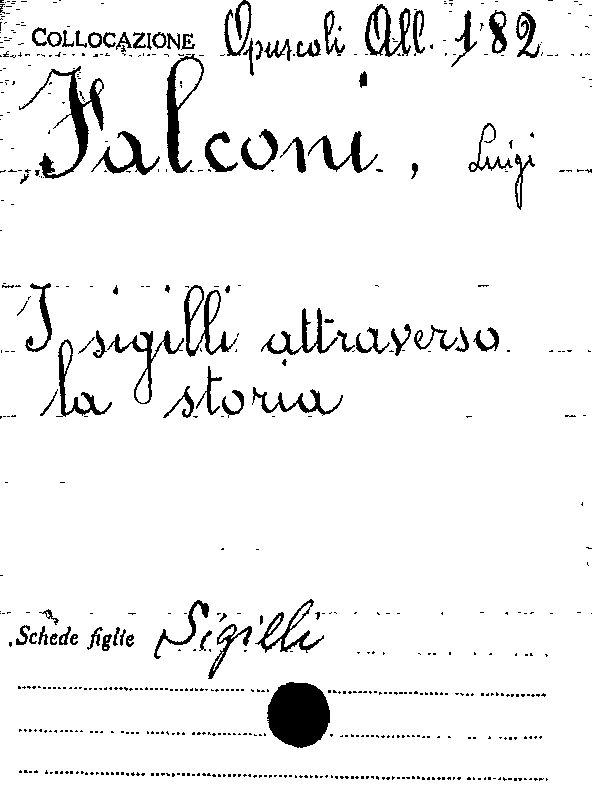 COLLOCAZIONE Opuscoli All. 182
Falconi, Luigi
I sigilli attraverso
la storia
Schede figlie Sigilli